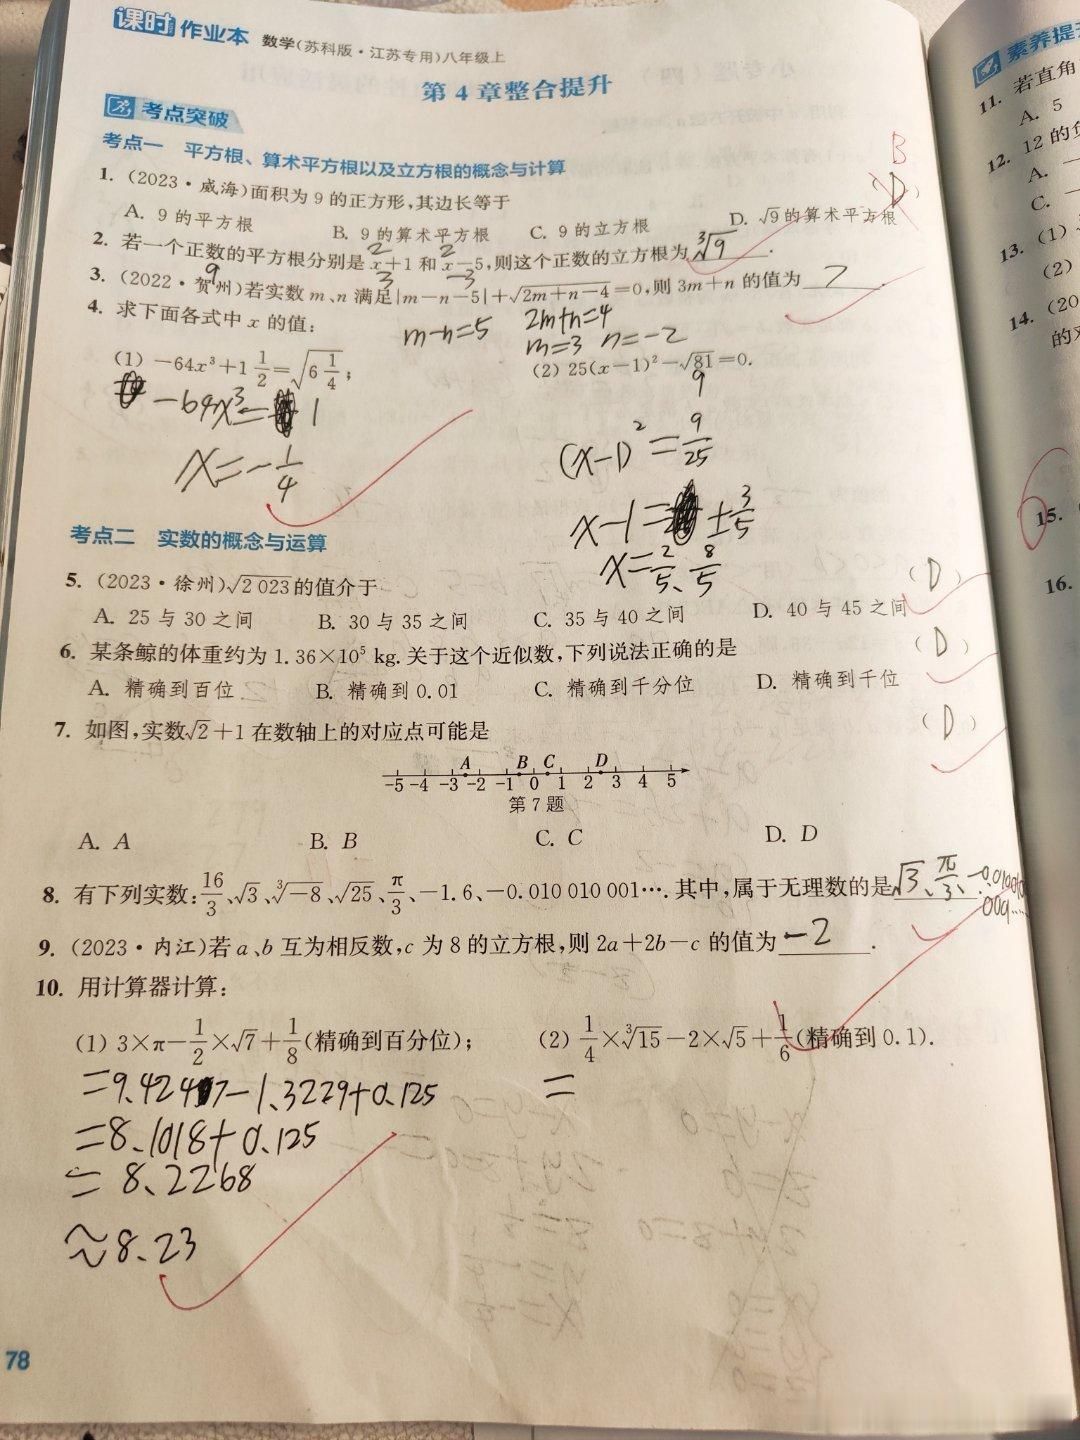 课时作业本 数学(苏科版·江苏专用)八年级上
第4章整合提升
考点突破
考点一 平方根、算术平方根以及立方根的概念与计算
B
1. (2023·威海)面积为9的正方形,其边长等于 (D)
A. 9的平方根 B. 9的算术平方根 C. 9的立方根 D. √9的算术平方根
2. 若一个正数的平方根分别是x+1和x-5,则这个正数的立方根为∛9.
2 2
9 3 -3
3. (2022·贺州)若实数m、n满足|m-n-5|+√(2m+n-4)=0,则3m+n的值为7.
m-n=5 2m+n=4
m=3 n=-2
4. 求下面各式中x的值:
(1) -64x³+1 1/2=√(6 1/4); (2) 25(x-1)²-√81=0.
9
-64x³=1
x=-1/4
(x-1)²=9/25
x-1=±3/5
x=2/5、8/5
考点二 实数的概念与运算
5. (2023·徐州)√2 023的值介于 (D)
A. 25与30之间 B. 30与35之间 C. 35与40之间 D. 40与45之间
6. 某条鲸的体重约为1.36×10⁵ kg.关于这个近似数,下列说法正确的是 (D)
A. 精确到百位 B. 精确到0.01 C. 精确到千分位 D. 精确到千位
7. 如图,实数√2+1在数轴上的对应点可能是 (D)
A B C D
-5 -4 -3 -2 -1 0 1 2 3 4 5
第7题
A. A B. B C. C D. D
8. 有下列实数:16/3、√3、∛-8、√25、π/3、-1.6、-0.010 010 001….其中,属于无理数的是√3、π/3、-0.010010001……
9. (2023·内江)若a、b互为相反数,c为8的立方根,则2a+2b-c的值为-2.
10. 用计算器计算:
(1) 3×π-1/2×√7+1/8(精确到百分位); (2) 1/4×∛15-2×√5+1/6(精确到0.1).
=9.4247-1.3229+0.125 =
=8.1018+0.125
=8.2268
≈8.23
78
素养提升
11. 若直角
A. 5
12. 12的
A.
C.
13. (1)
(2)
14. (20
的
15.
16.